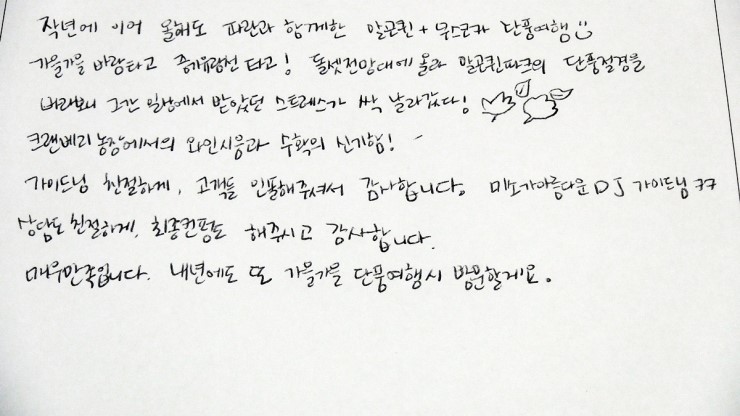 작년에 이어 올해도 파란과 함께한 알곤퀸 + 무스코카 단풍여행
가을가을 바람타고 증기유람선 타고! 돌셋전망대에 올라 알곤퀸파크의 단풍절경을
바라보니 그간 일상에서 받았던 스트레스가 싹 날라갔다!
크랜베리 농장에서의 와인시음과 수확의 신기함!
가이드님 친절하게, 고객들 인폼해주셔서 감사합니다. 미소가아름다운 DJ 가이드님 ㅋㅋ
상담도 친절하게, 최종컨펌도 해주시고 감사합니다.
매우만족입니다. 내년에도 또 가을가을 단풍여행시 방문할게요.